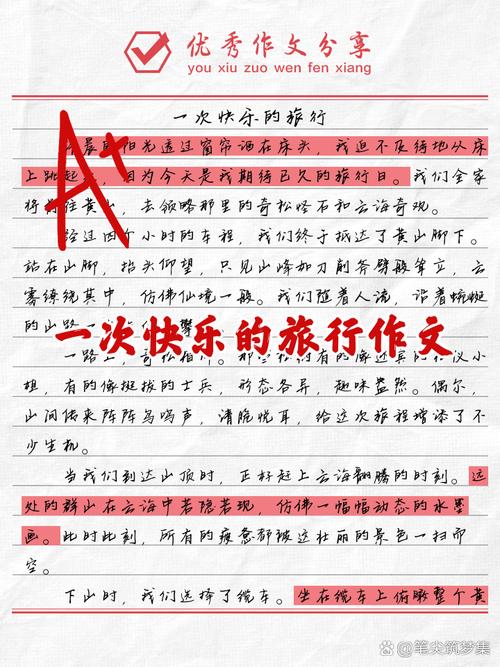 优秀作文分享
you xiu zuo wen fen xiang
一次快乐的旅行
A+
晨的阳光透过窗帘洒在床头，我迫不及待地从床
上跳起，因为今天是我期待已久的旅行日。我们全家
将往黄山，去领略那里的奇松怪石和云海奇观。
经过四个小时的车程，我们终于抵达了黄山脚下。
站在山脚，抬头仰望，只见山峰如刀削斧劈般耸立，云
雾缭绕其中，仿佛仙境一般。我们随着人流，沿着蜿蜒
的山路一
一次快乐的旅行作文
一路上，
姐，有的像挺拔的士兵，形态各异，趣味盎然。偶尔，
山间传来阵阵鸟鸣声，清脆悦耳，给这次旅程增添了不
少生机。
当我们到达山顶时，正好赶上云海翻腾的时刻。远
处的群山在云海中若隐若现，仿佛一幅幅动态的水墨
画。此时此刻，所有的疲惫都被这壮丽的景色一扫而
空。
下山时，我们选择了缆车。坐在缆车上俯瞰整个黄
@笔尖筑梦集